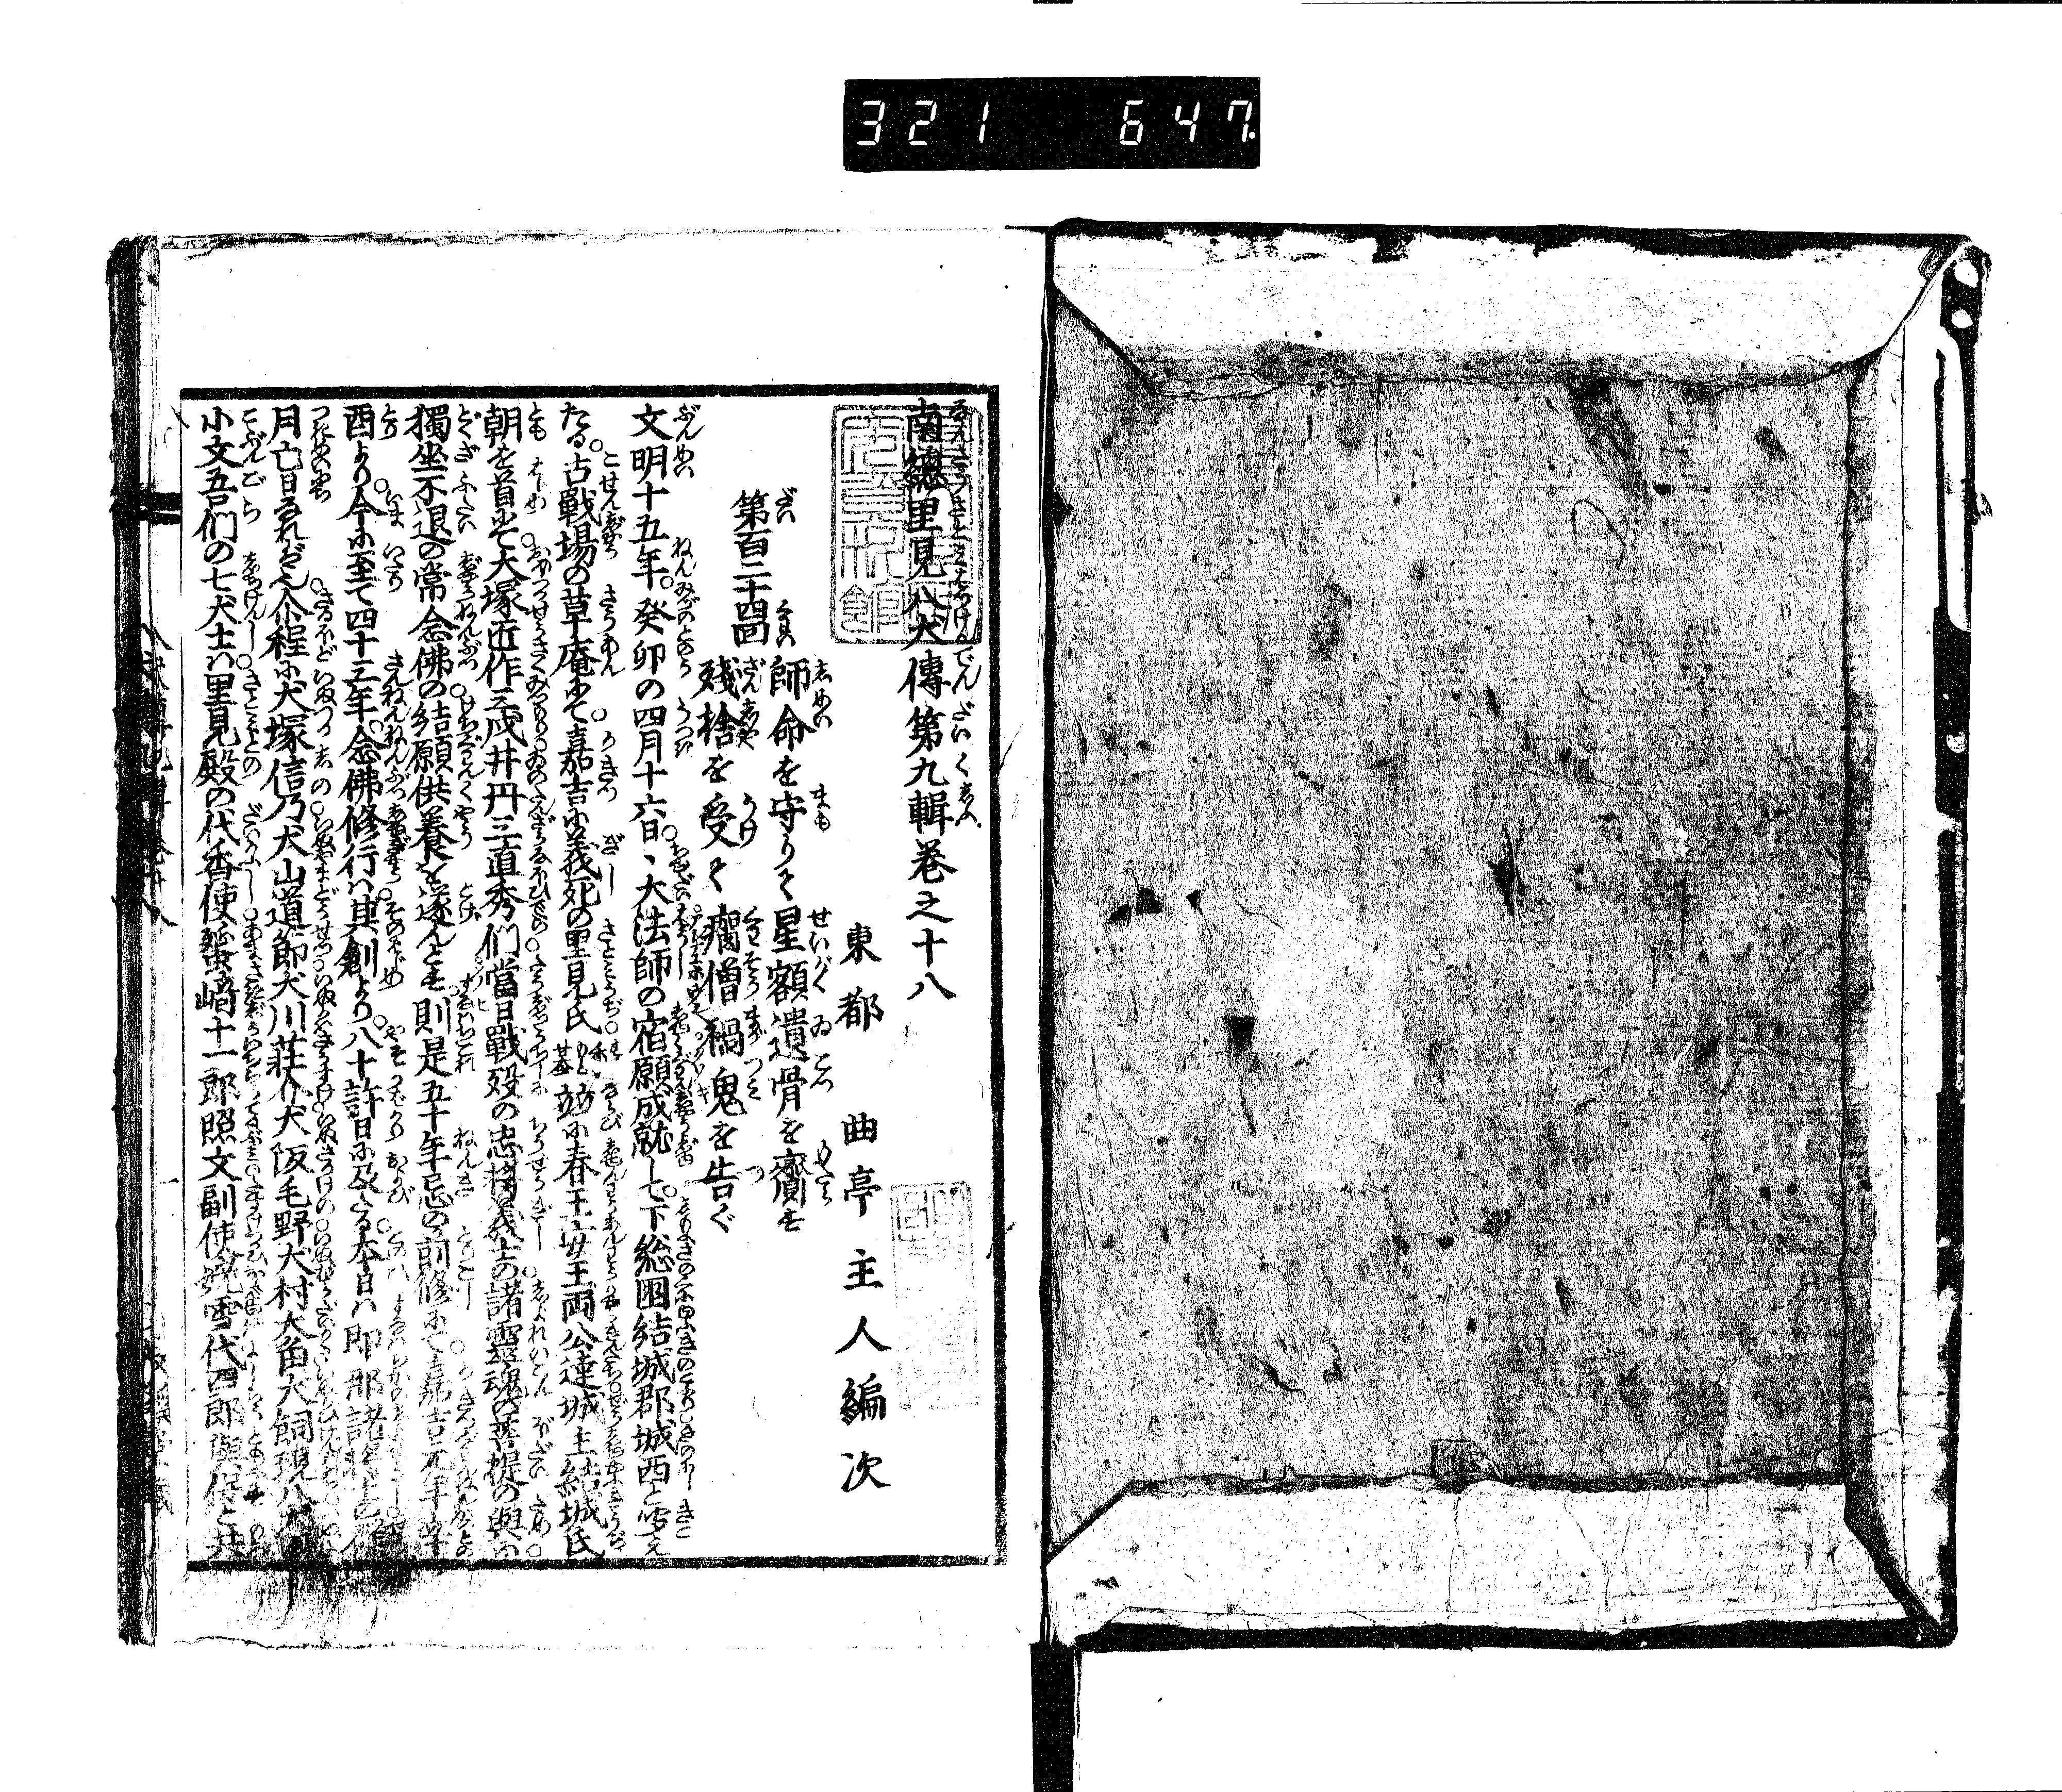 321 647
南總里見八犬傳第九輯巻之十八
東都 曲亭主人編次
第百二十四回
師命を守りて星額遺骨を齎す
残捨を受て癘僧禍鬼を告ぐ
文明十五年。癸卯の四月十六日、大法師の宿願成就して。下総国結城郡城西と喚え
たる。古戦場の草庵にて。嘉吉に義死の里見氏
並に春王安王両公達城主結城氏
朝を首にて大塚匠作三戍井丹三直秀们當日戰歿の忠僕義士の諸霊魂の菩提の與に
獨坐不退の常念佛の結願供養を遂んとす則是五十年忌の前修にて嘉吉元年辛
酉より今に至て四十三年念佛修行は其創より八十許日に及べる本日は即那諸
月亡日なれば介程に犬塚信乃犬山道節犬川荘介犬阪毛野犬村大角犬飼現八犬田
小文吾们の七犬士は里見殿の代香使蜑崎十一郎照文副使姥雪代四郎與保と共